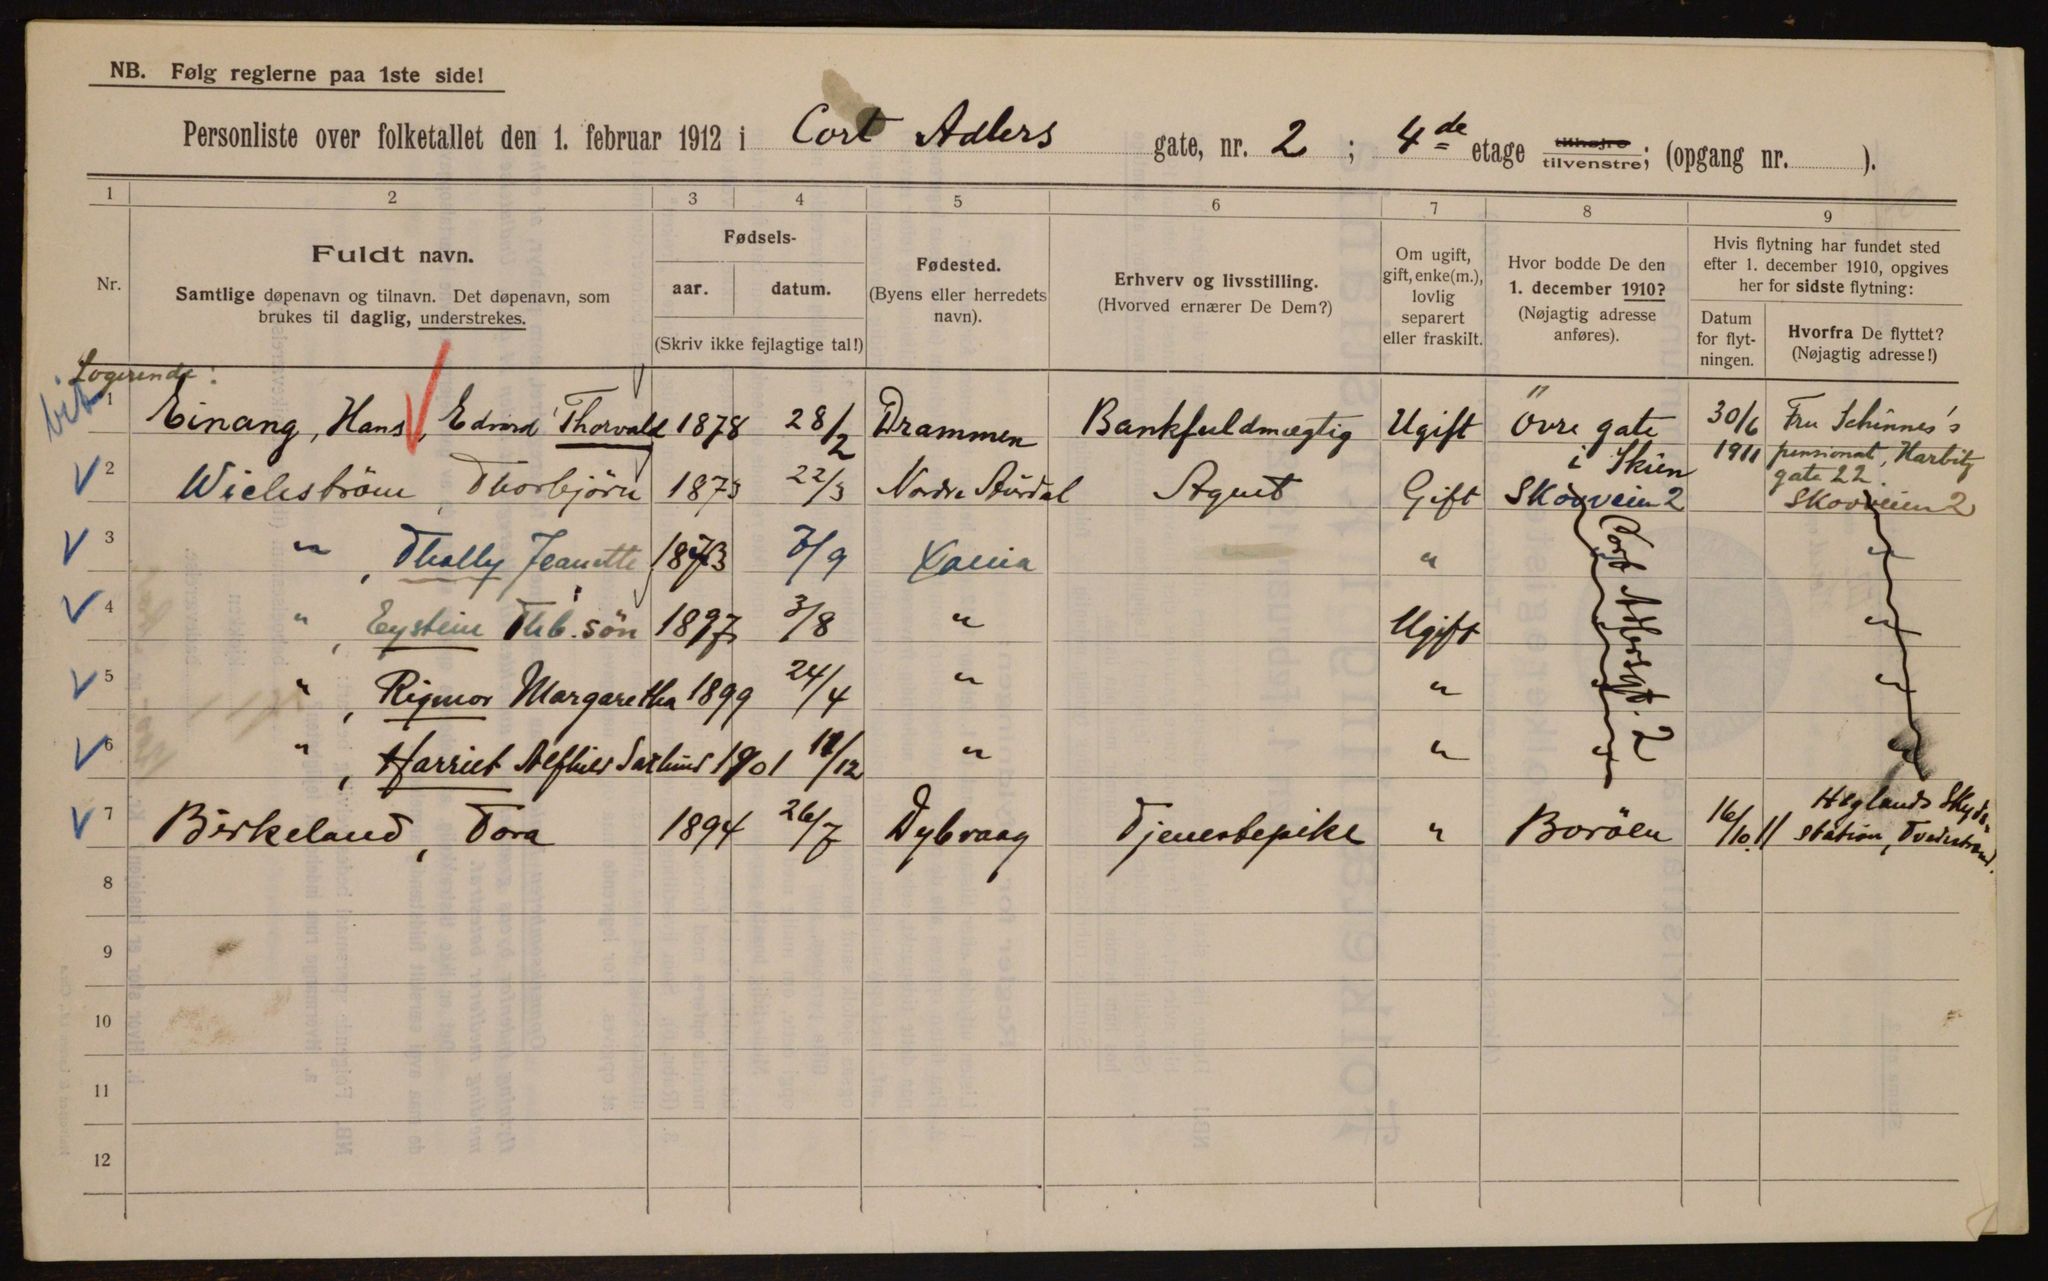 NB. Følg reglerne paa 1ste side!
Personliste over folketallet den 1. februar 1912 i Cort Adlers gate, nr. 2 ; 4de etage tilhøjre tilvenstre; (opgang nr. ).
1 2 3 4 5 6 7 8 9
Nr.
Fuldt navn.
Samtlige døpenavn og tilnavn. Det døpenavn, som
brukes til daglig, understrekes.
Fødsels-
aar. datum.
(Skriv ikke fejlagtige tal!)
Fødested.
(Byens eller herredets
navn).
Erhverv og livsstilling.
(Hvorved ernærer De Dem?)
Om ugift,
gift, enke(m.),
lovlig
separert
eller fraskilt.
Hvor bodde De den
1. december 1910?
(Nøjagtig adresse
anføres).
Hvis flytning har fundet sted
efter 1. december 1910, opgives
her for sidste flytning:
Datum
for flyt-
ningen.
Hvorfra De flyttet?
(Nøjagtig adresse!)
Logerende:
1 Einang, Hans, Edvard Thorvald 1878 28/2 Drammen Bankfuldmægtig Ugift Övre gate i Skien 30/6 1911 Fru Schinnes's pensionat, Harbitz gate 22.
2 Wichström, Thorbjörn 1873 22/3 Nordre Aurdal Agent Gift Skovveien 2 Skovveien 2
3 " , Tholly Jeanette 1873 7/9 Xania " " "
4 " , Eystein Thb.sön 1897 3/8 " Ugift " "
5 " , Rigmor Margaretha 1899 24/4 " " " "
6 " , Harriet 1901 /12 " " " "
Cort Adlersgt. 2
7 Birkeland, Tora 1894 26/7 Dybvaag Tjenestepike " Boröen 16/10.11 Heglands Skyds- station, Tvedestrand.
8
9
10
11
12